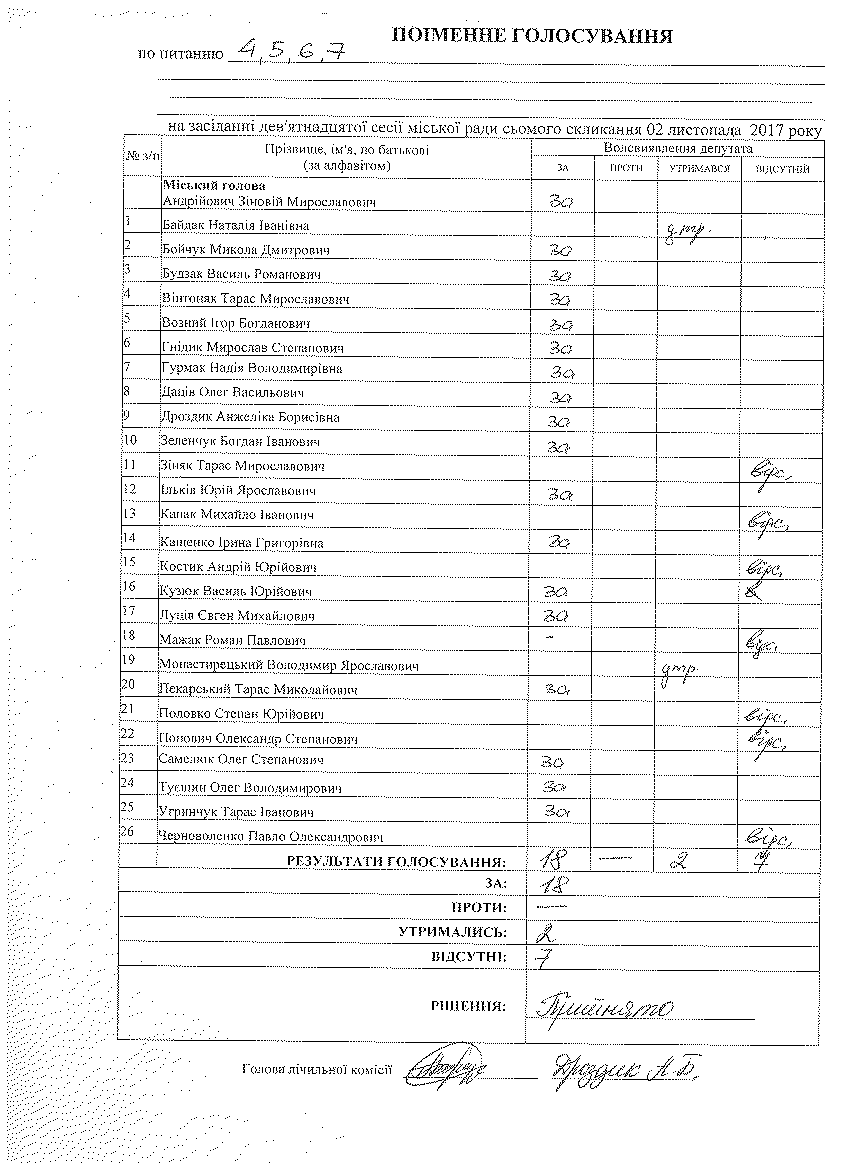 ПОІМЕННЕ ГОЛОСУВАННЯ
по питанню 4, 5, 6, 7
на засіданні дев'ятнадцятої сесії міської ради сьомого скликання 02 листопада 2017 року
№ з/п Прізвище, ім'я, по батькові (за алфавітом) Волевиявлення депутата
ЗА ПРОТИ УТРИМАВСЯ ВІДСУТНІЙ
Міський голова
Андрійович Зіновій Мирославович за
1 Байдак Наталія Іванівна утр.
2 Бойчук Микола Дмитрович за
3 Будзак Василь Романович за
4 Вінтоняк Тарас Мирославович за
5 Возний Ігор Богданович за
6 Гнідик Мирослав Степанович за
7 Гурмак Надія Володимирівна за
8 Даців Олег Васильович за
9 Дроздик Анжеліка Борисівна за
10 Зеленчук Богдан Іванович за
11 Зіняк Тарас Мирославович відс.
12 Ільків Юрій Ярославович за
13 Капак Михайло Іванович відс.
14 Кащенко Ірина Григорівна за
15 Костик Андрій Юрійович відс.
16 Кузюк Василь Юрійович за
17 Луців Євген Михайлович за
18 Мажак Роман Павлович - відс.
19 Монастирецький Володимир Ярославович утр.
20 Пекарський Тарас Миколайович за
21 Половко Степан Юрійович відс.
22 Попович Олександр Степанович відс.
23 Самелюк Олег Степанович за
24 Олег Володимирович за
25 Угринчук Тарас Іванович за
26 Черноволенко Павло Олександрович відс.
РЕЗУЛЬТАТИ ГОЛОСУВАННЯ: 18 — 2 7
ЗА: 18
ПРОТИ: —
УТРИМАЛИСЬ: 2
ВІДСУТНІ: 7
РІШЕННЯ: Прийнято
Голова лічильної комісії Дроздик А.Б.